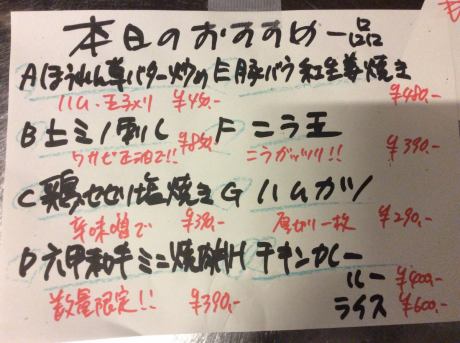 本日のおすすめ一品
Aほうれん草バター炒め
ハム・玉子入り ¥450,-
E豚バラ紅生姜焼き
¥480,-
B上ミノ刺し
ワサビ正油で!! ¥850,-
F ニラ玉
ニラガッツリ!! ¥390,-
C 鶏せせり塩焼き
辛味噌で ¥390,-
G ハムカツ
厚切り一枚 ¥290,-
D 六甲和牛ミニ焼肉
数量限定!! ¥390,-
H チキンカレー
ルー ¥400,-
ライス ¥600,-